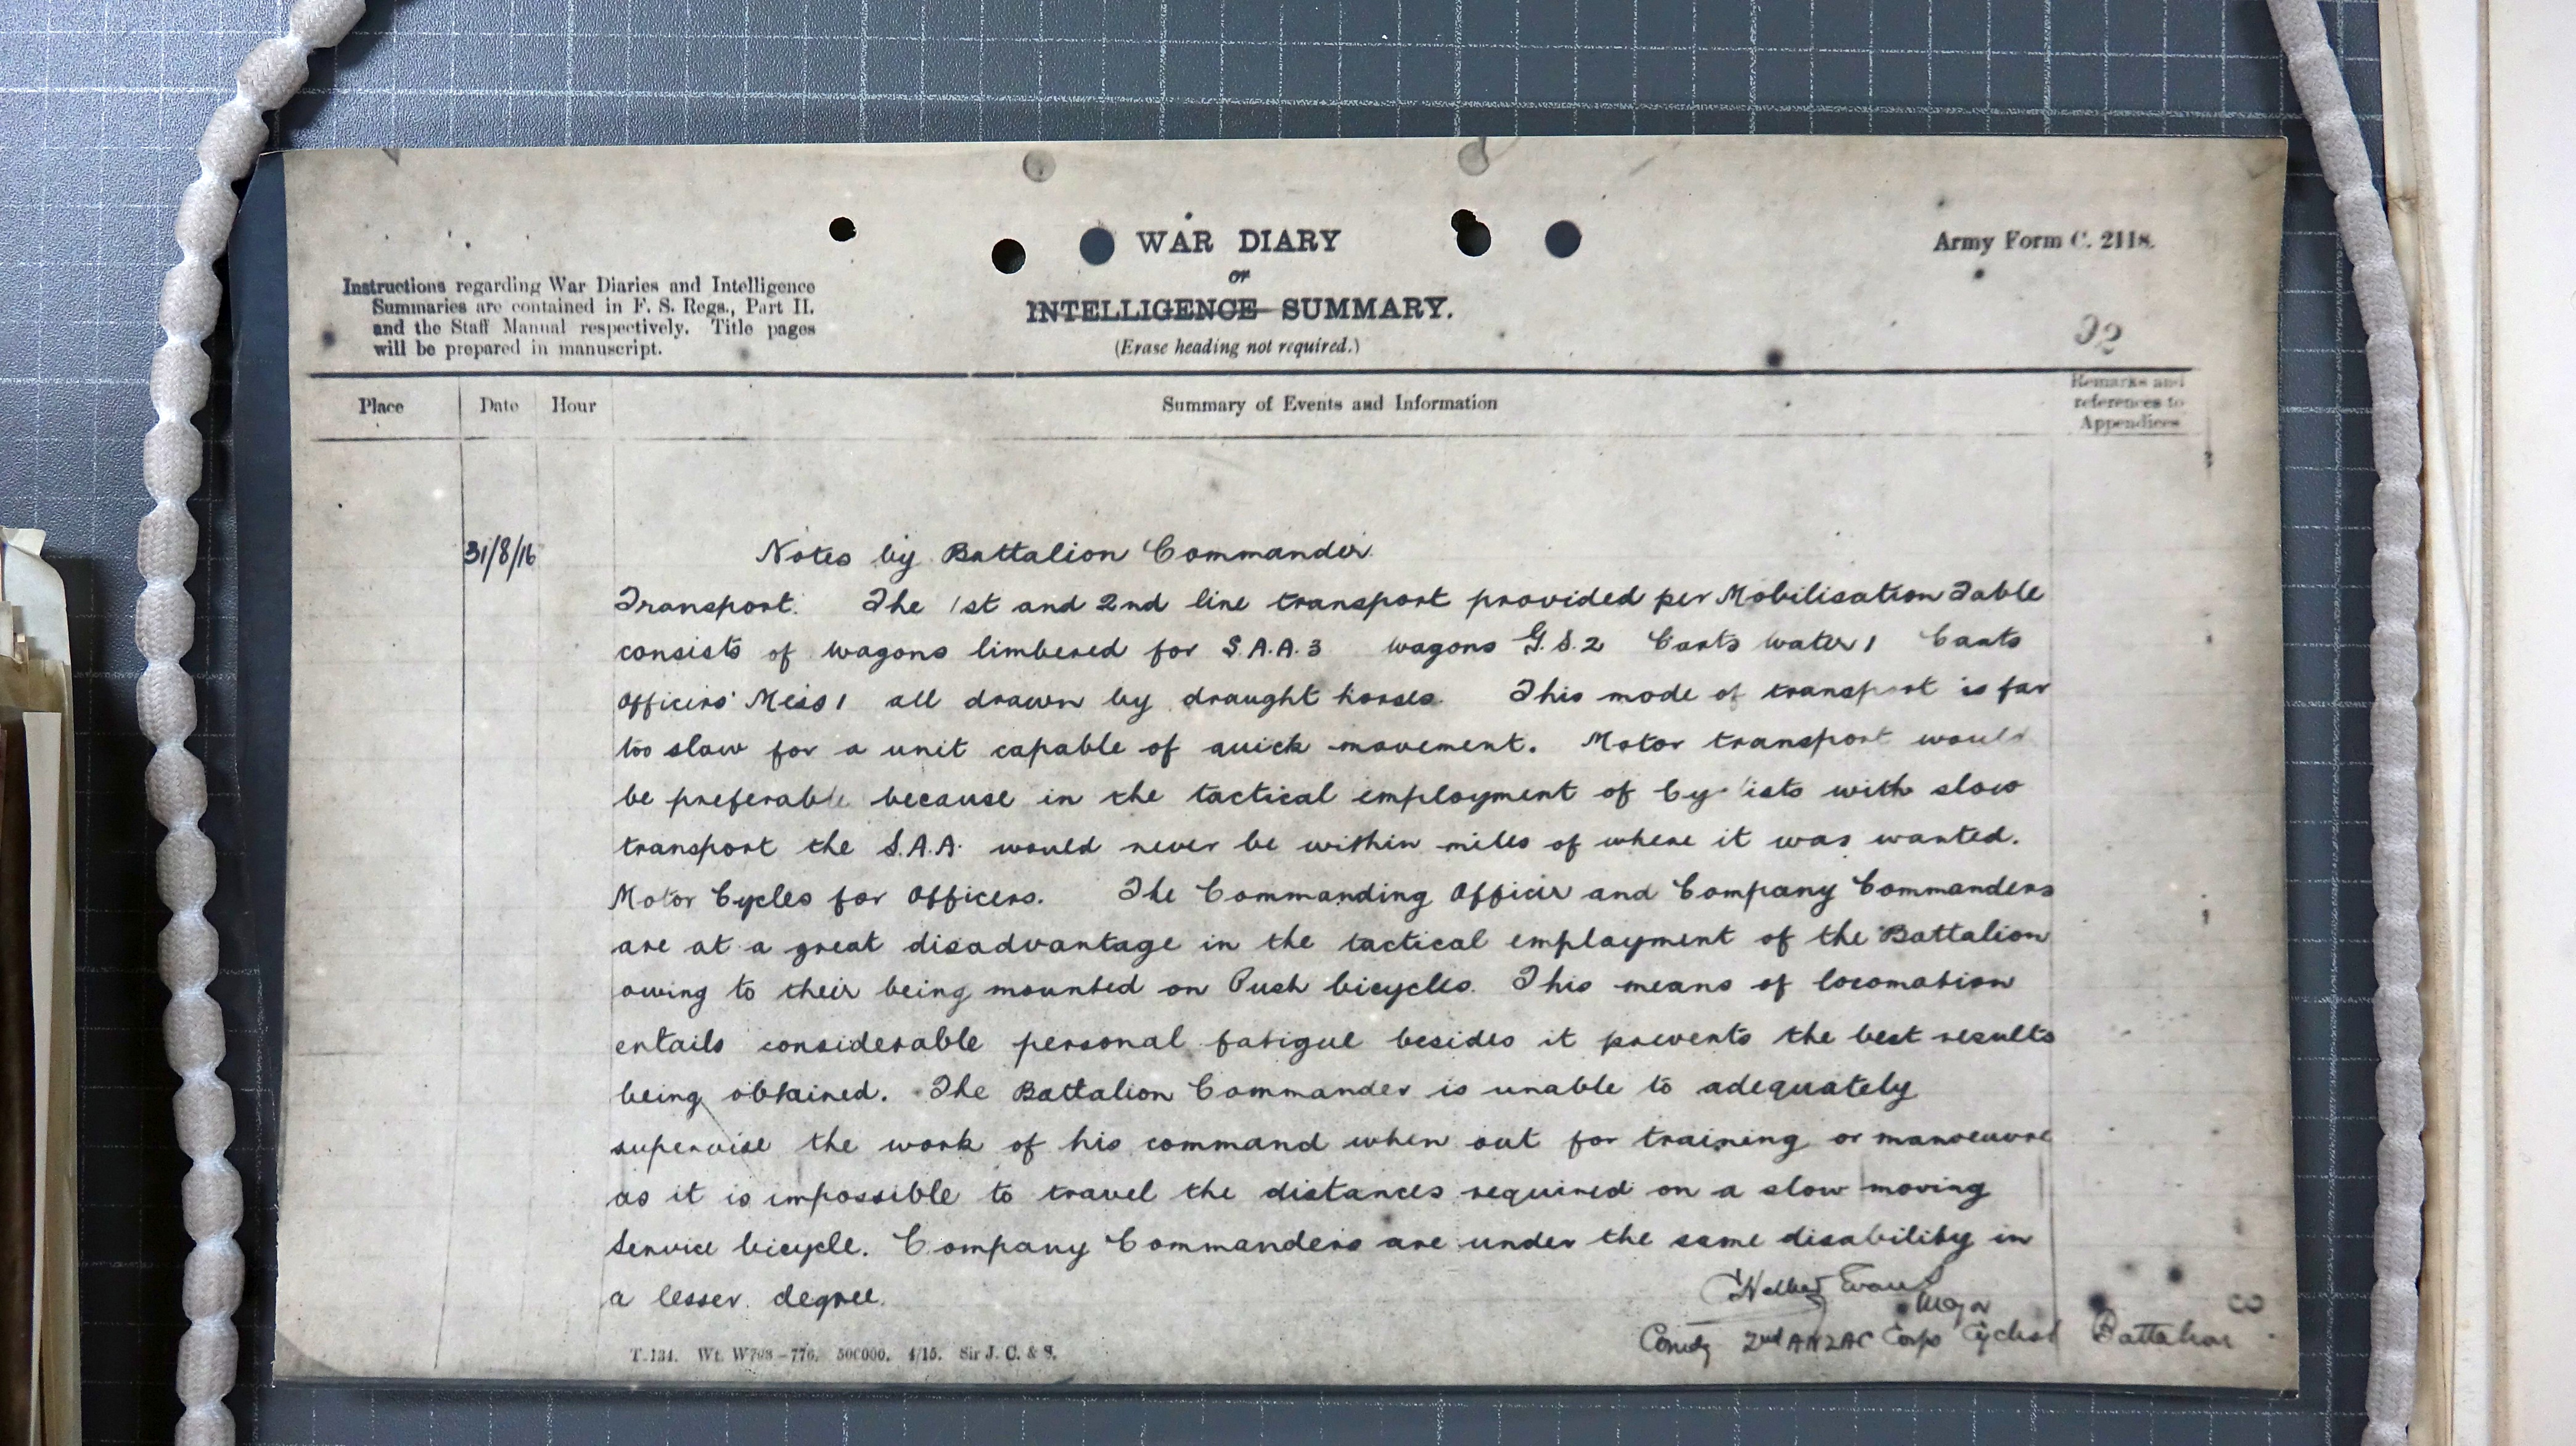 WAR DIARY
or
INTELLIGENCE SUMMARY.
(Erase heading not required.)
Army Form C. 2118.
Instructions regarding War Diaries and Intelligence
Summaries are contained in F. S. Regs., Part II.
and the Staff Manual respectively. Title pages
will be prepared in manuscript.
Place Date Hour Summary of Events and Information
Remarks and
references to
Appendices
31/8/16 Notes by Battalion Commander.
Transport. The 1st and 2nd line transport provided per Mobilisation Table
consists of wagons limbered for S.A.A. 3 wagons G.S. 2 Carts water 1 Carts
Officers' Mess 1 all drawn by draught horses. This mode of transport is far
too slow for a unit capable of quick movement. Motor transport would
be preferable because in the tactical employment of Cyclists with slow
transport the S.A.A. would never be within miles of where it was wanted.
Motor Cycles for Officers. The Commanding Officer and Company Commanders
are at a great disadvantage in the tactical employment of the Battalion
owing to their being mounted on Push bicycles. This means of locomotion
entails considerable personal fatigue besides it prevents the best results
being obtained. The Battalion Commander is unable to adequately
supervise the work of his command when out for training or manoeuvre
as it is impossible to travel the distances required on a slow moving
Service bicycle. Company Commanders are under the same disability in
a lesser degree.
Evans
Major
Comdg 2nd ANZAC Corps Cyclist Battalion
T.134. Wt. W708-776. 500000. 4/15. Sir J. C. & S.